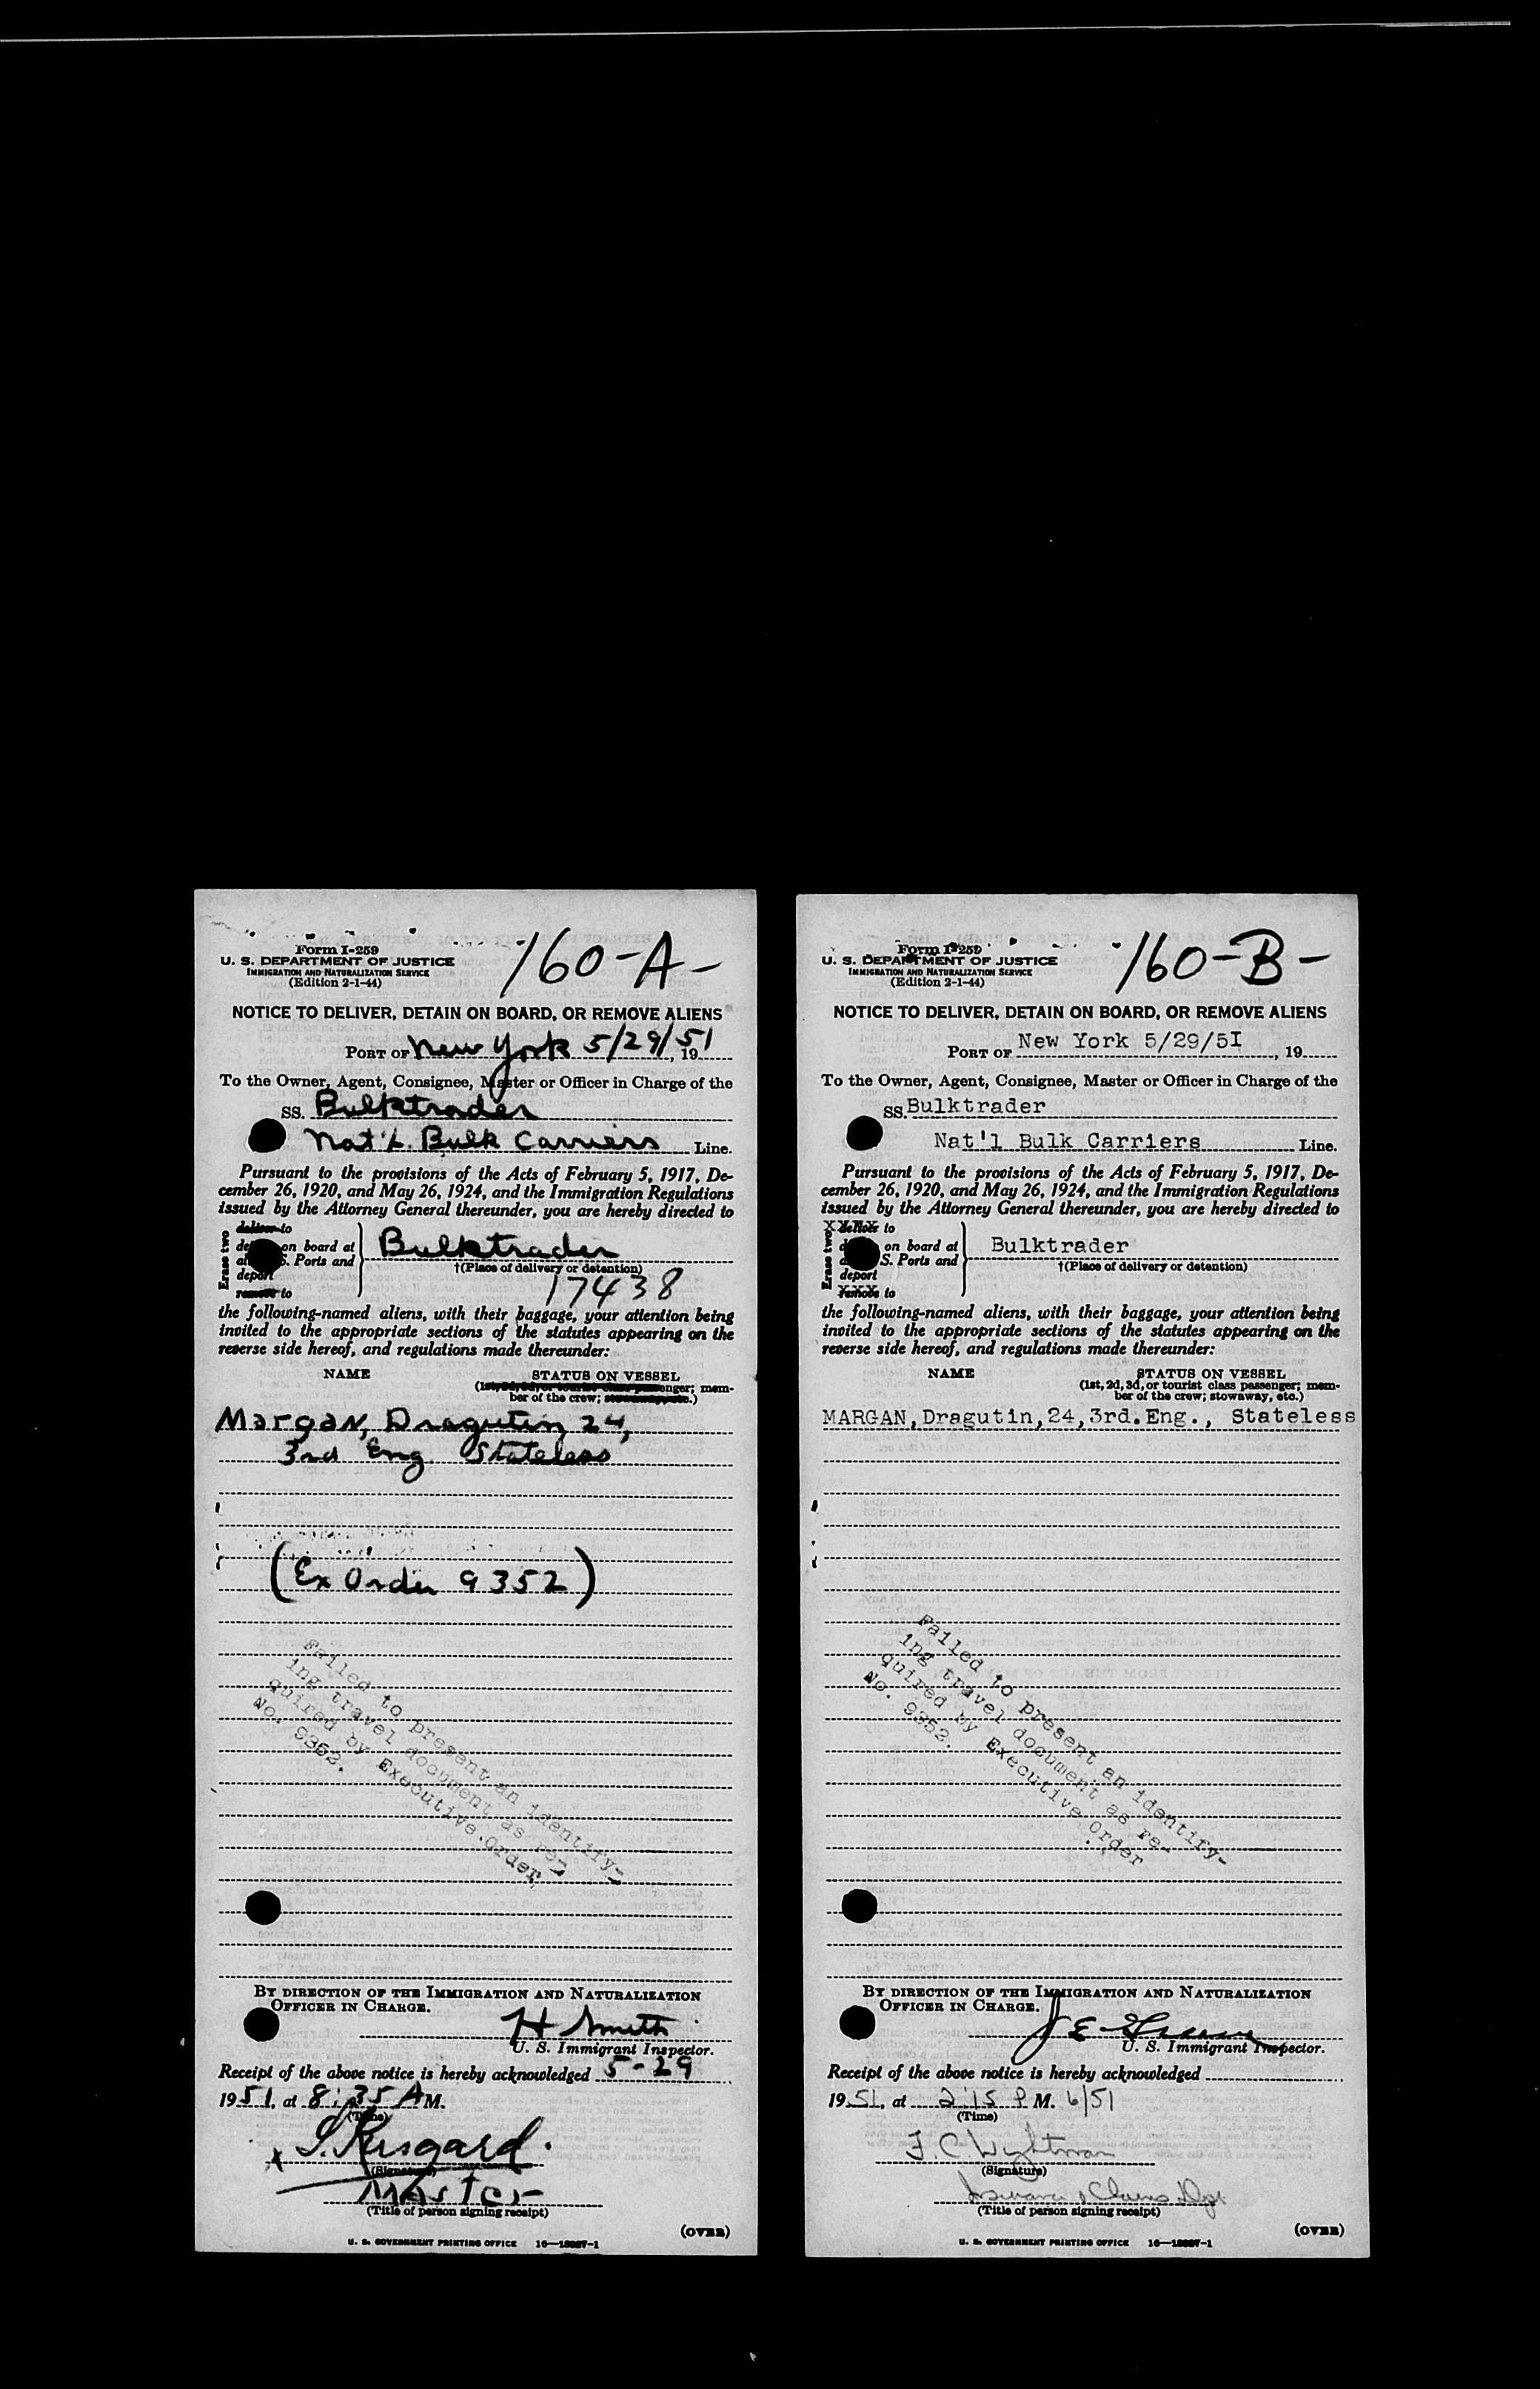 160-A-
Form I-259
U. S. DEPARTMENT OF JUSTICE
IMMIGRATION AND NATURALIZATION SERVICE
(Edition 2-1-44)
NOTICE TO DELIVER, DETAIN ON BOARD, OR REMOVE ALIENS
PORT OF New York 5/29/51, 19
To the Owner, Agent, Consignee, Master or Officer in Charge of the
SS. Bulktrader
Nat'l. Bulk Carriers Line.
Pursuant to the provisions of the Acts of February 5, 1917, De-
cember 26, 1920, and May 26, 1924, and the Immigration Regulations
issued by the Attorney General thereunder, you are hereby directed to
Erase two
deliver to
on board at
S. Ports and
deport
remove to
Bulktrader
†(Place of delivery or detention)
17438
the following-named aliens, with their baggage, your attention being
invited to the appropriate sections of the statutes appearing on the
reverse side hereof, and regulations made thereunder:
NAME STATUS ON VESSEL
(1st, 2d, 3d, or tourist class passenger; mem-
ber of the crew; stowaway, etc.)
Margan, Dragutin, 24,
3rd Eng. Stateless
(Ex Order 9352)
Failed to present an identify-
ing travel document as re-
quired by Executive Order
No. 9352.
BY DIRECTION OF THE IMMIGRATION AND NATURALIZATION
OFFICER IN CHARGE.
H Smith
U. S. Immigrant Inspector.
Receipt of the above notice is hereby acknowledged 5-29
1951, at 8:35 A M.
(Time)
(Signature)
Master
(Title of person signing receipt)
(OVER)
U. S. GOVERNMENT PRINTING OFFICE
160-B-
Form I-259
U. S. DEPARTMENT OF JUSTICE
IMMIGRATION AND NATURALIZATION SERVICE
(Edition 2-1-44)
NOTICE TO DELIVER, DETAIN ON BOARD, OR REMOVE ALIENS
PORT OF New York 5/29/5I, 19
To the Owner, Agent, Consignee, Master or Officer in Charge of the
SS. Bulktrader
Nat'l Bulk Carriers Line.
Pursuant to the provisions of the Acts of February 5, 1917, De-
cember 26, 1920, and May 26, 1924, and the Immigration Regulations
issued by the Attorney General thereunder, you are hereby directed to
Erase two
deliver to
on board at
S. Ports and
deport
remove to
Bulktrader
†(Place of delivery or detention)
the following-named aliens, with their baggage, your attention being
invited to the appropriate sections of the statutes appearing on the
reverse side hereof, and regulations made thereunder:
NAME STATUS ON VESSEL
(1st, 2d, 3d, or tourist class passenger; mem-
ber of the crew; stowaway, etc.)
MARGAN,Dragutin,24,3rd.Eng., Stateless
Failed to present an identify-
ing travel document as re-
quired by Executive Order
No. 9352.
BY DIRECTION OF THE IMMIGRATION AND NATURALIZATION
OFFICER IN CHARGE.
U. S. Immigrant Inspector.
Receipt of the above notice is hereby acknowledged
1951, at 2:15 P M. 6/51
(Time)
F. C. Wightman
(Signature)
(Title of person signing receipt)
(OVER)
U. S. GOVERNMENT PRINTING OFFICE